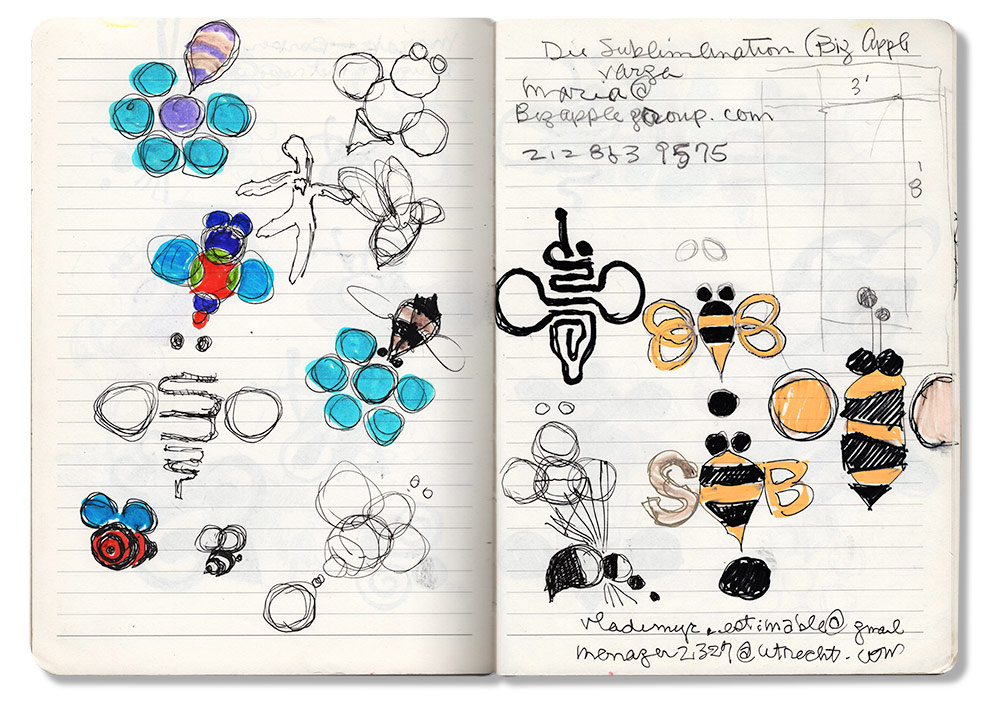 Die Sublimination (Big Apple
varga
maria@
Bigapplegroup.com
212 863 9575
3'
8'
S B
vladimyr.estimable@gmail
manager2327@utrecht.com